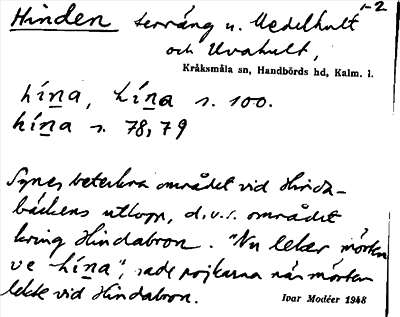 Hinden terräng u. Uedelhult 1-2
och Uvahult,
Kråksmåla sn, Handbörds hd, Kalm. l.
hína, hína s. 100.
hína s. 78, 79
Synes beteckna området vid Hinda-
bäckens utlopp, d.v.s. området
kring Hindabron. "Nu leker mörten
ve hína", sade pojkarna när mörten
lekte vid Hindabron.
Ivar Modéer 1948